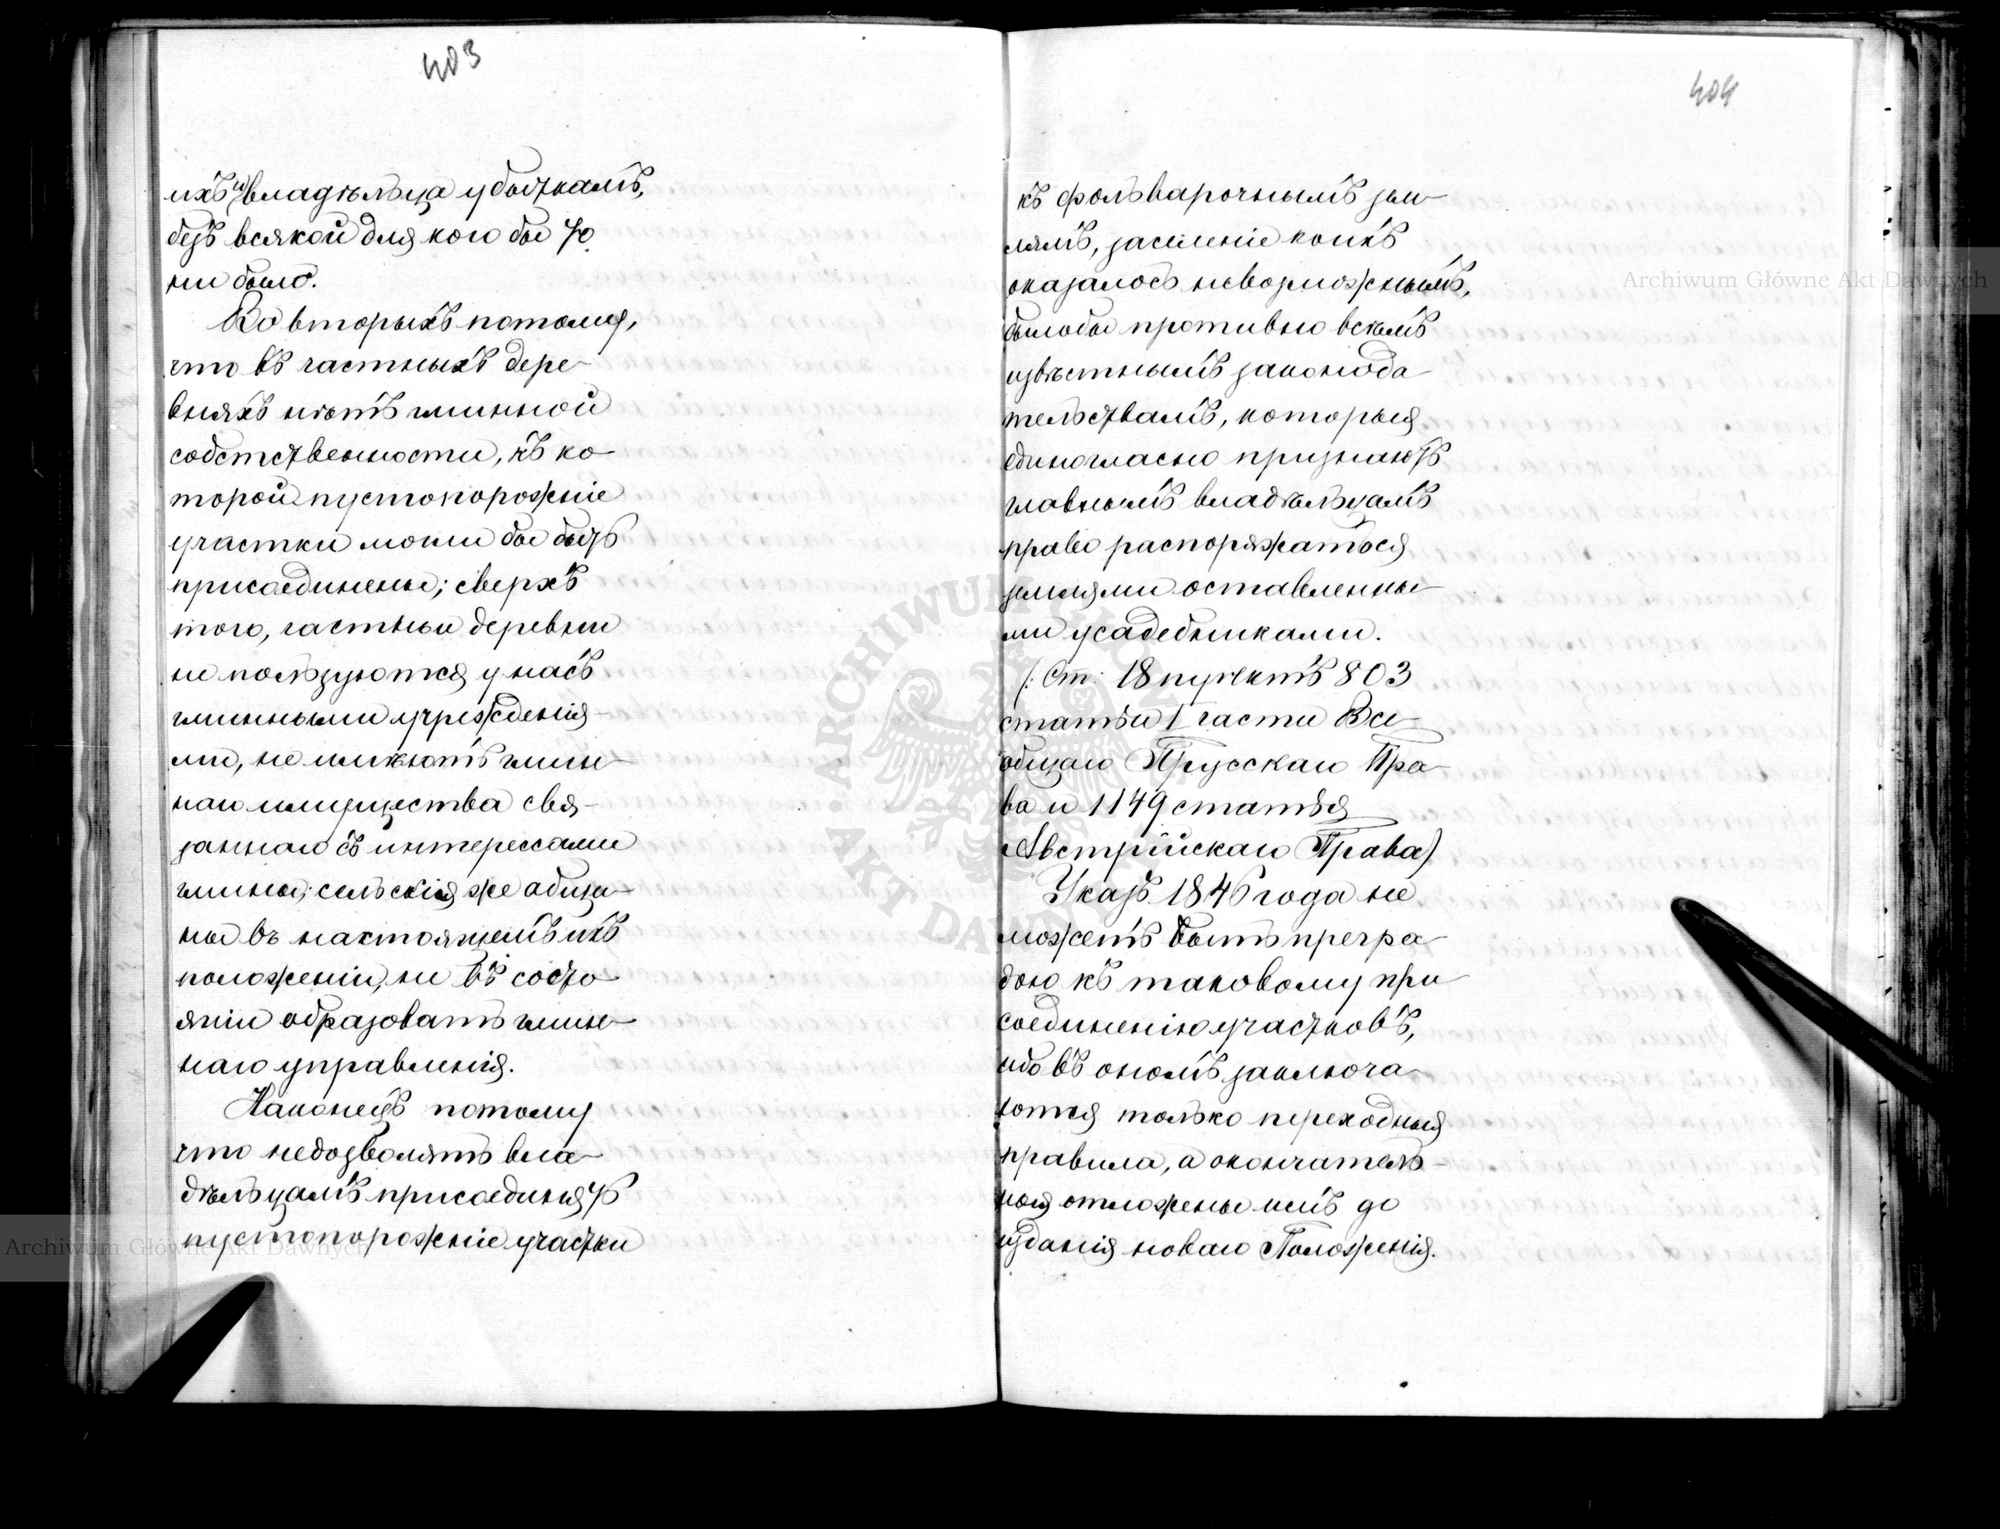 403
ихъ и владѣльца убыткамъ,
безъ всякой для кого бы то
ни было.
Во вторыхъ потому,
что въ частныхъ дере-
вняхъ нѣтъ гминной
собственности, къ ко-
торой пустопорожніе
участки могли бы быть
присоединены; сверхъ
того, частныя деревни
не пользуются у насъ
гминными учрежденія-
ми, не имѣютъ гмин-
наго имущества свя-
заннаго съ интерессами
гмины; сельскія же общи-
ны въ настоящемъ ихъ
положеніи, не въ состо-
яніи образовать гмин-
наго управленія.
Наконецъ потому
что недозволять вла-
дѣльцамъ присоединять
пустопорожніе участки
404
къ фольварочнымъ зем-
лямъ, заселеніе коихъ
оказалось невозможнымъ,
было бы противно всѣмъ
извѣстнымъ законода-
тельствамъ, которыя
единогласно признаютъ
главнымъ владѣльцамъ
право распоряжаться
землями оставленны-
ми усадебниками.
(: Ст: 18 пунктъ 803
статьи 1 части Все-
общаго Прусскаго Пра-
ва и 1149 статья
Австрійскаго Права)
Указъ 1846 года не
можетъ быть прегра-
дою къ таковому при
соединенію участковъ,
ибо въ ономъ заключа-
ются только переходныя
правила, а окончатель-
ныя отложены имъ до
изданія новаго Положенія.
Archiwum Główne Akt Dawnych
Archiwum Główne Akt Dawnych